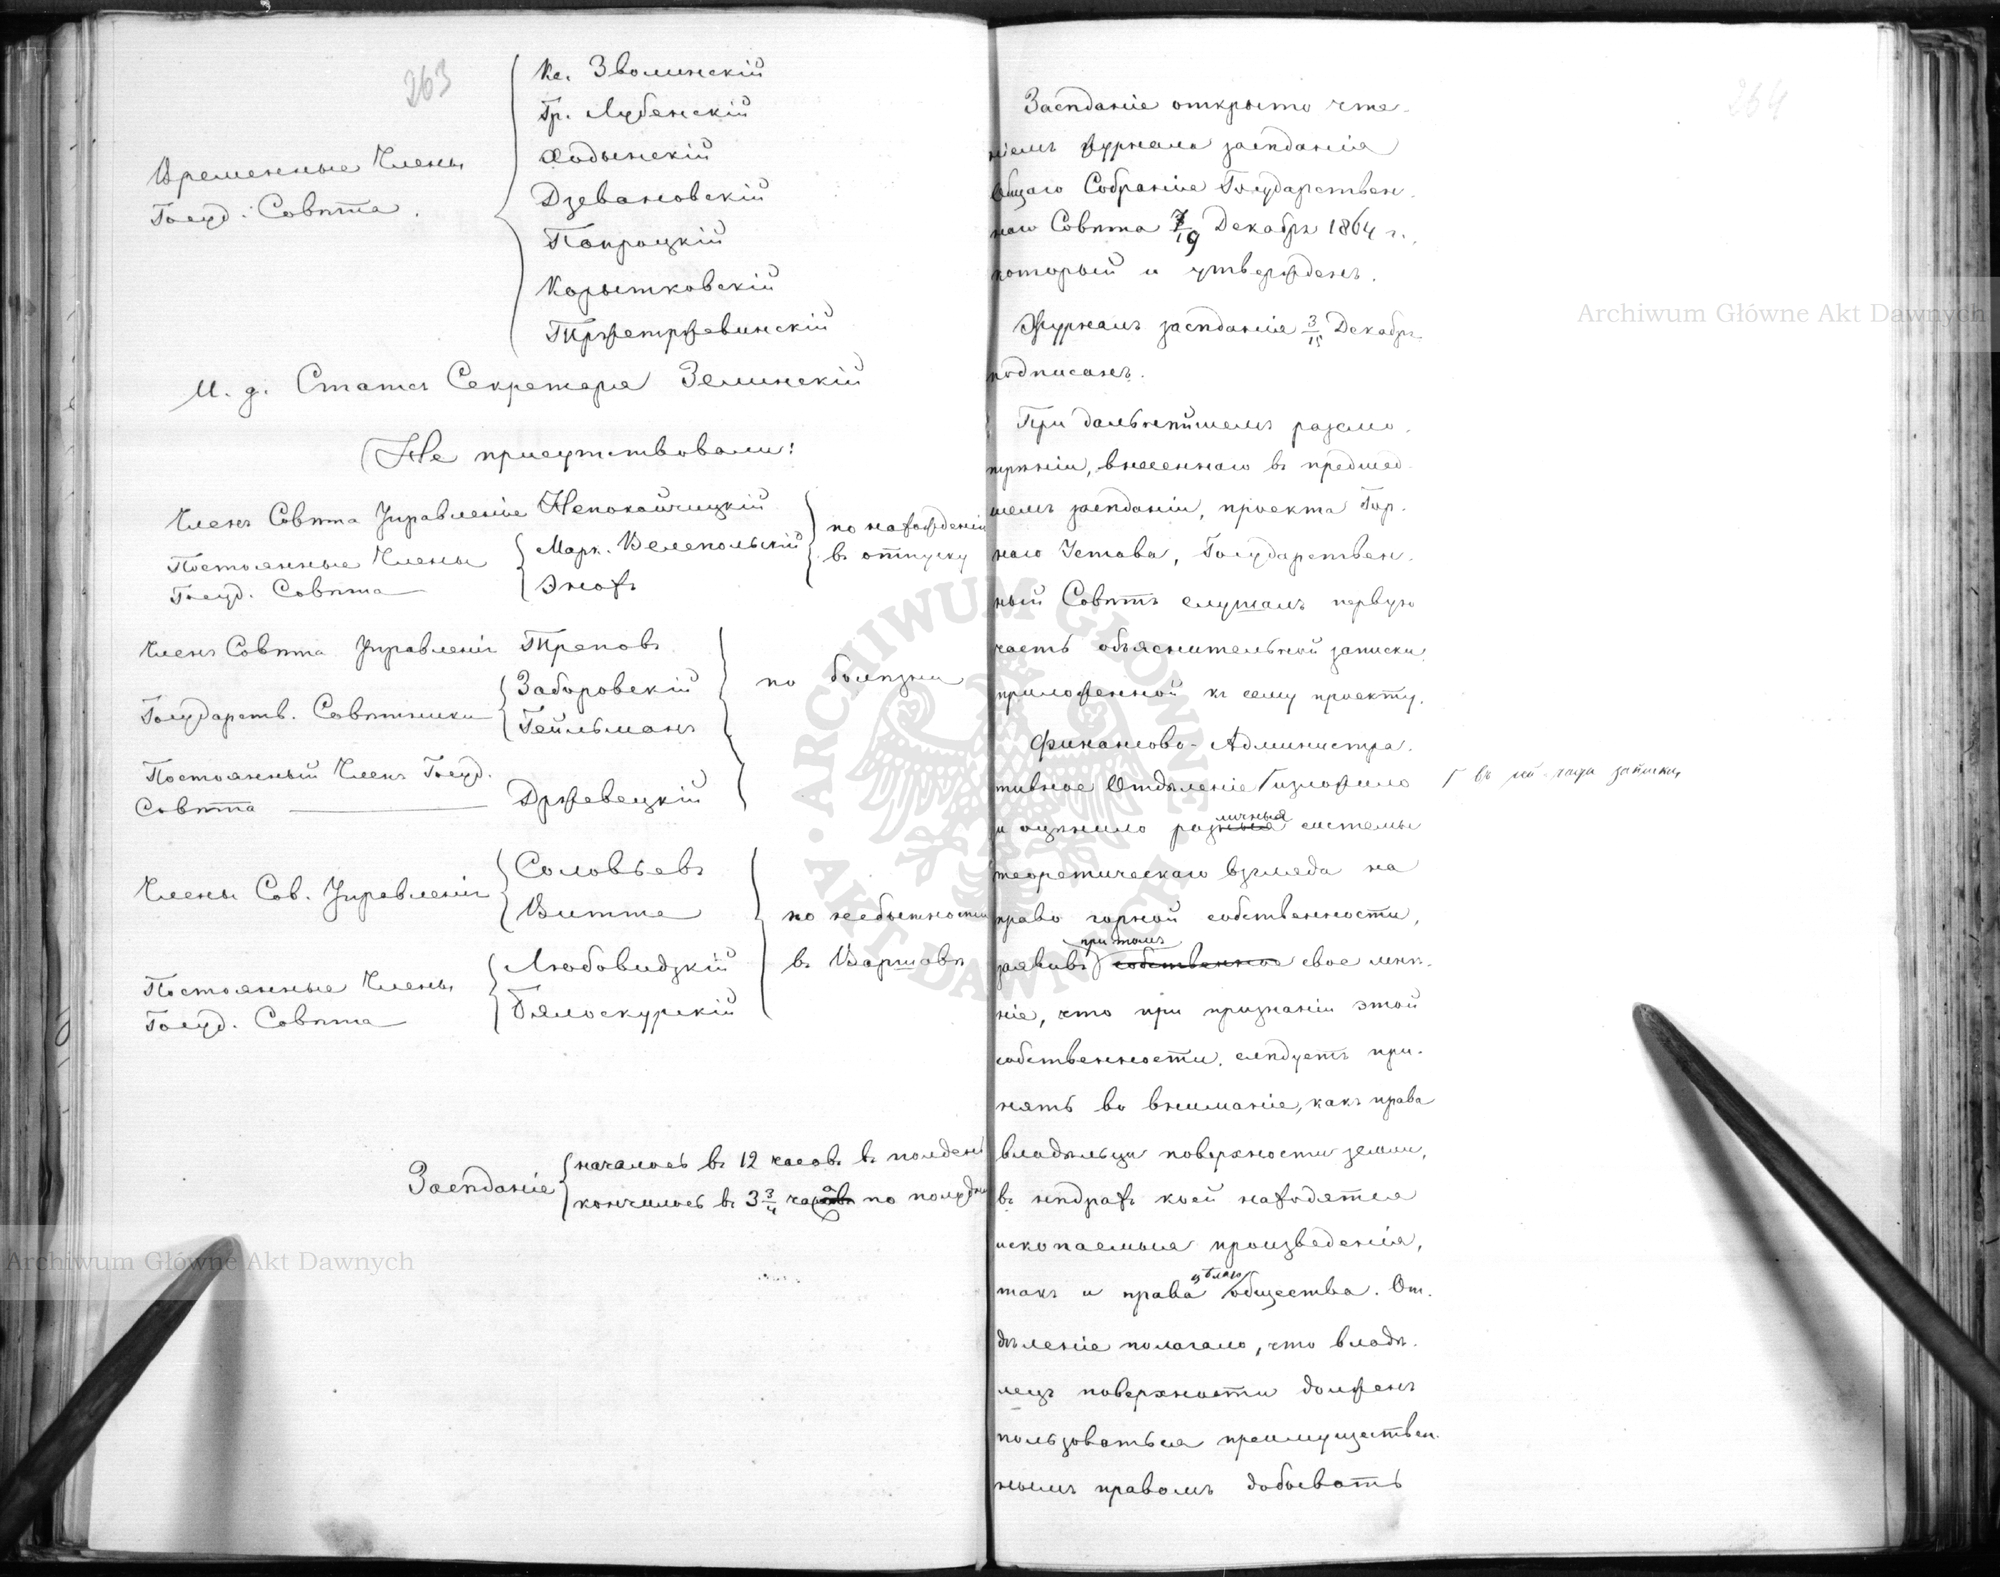 263
Временные Члены
Госуд. Совѣта.
Кс. Зволинскій
Гр. Лубенскій
Ходынскій
Дзевановскій
Папроцкій
Корытковскій
Тржетржевинскій
И. д. Статсъ Секретаря Зелинскій
Не присутствовали:
Членъ Совѣта Управленія Непокойчицкій
Постоянные Члены
Госуд. Совѣта
Марк. Велепольскій
Энохъ
по нахожденію
въ отпуску
Членъ Совѣта Управленія Треповъ
Государств. Совѣтники
Заборовскій
Гейльманъ
по болѣзни
Постоянный Членъ Госуд.
Совѣта
Држевецкій
Члены Сов. Управленія
Соловьевъ
Витте
Постоянные Члены
Госуд. Совѣта
Любовидзкій
Бялоскурскій
по небытности
въ Варшавѣ
Засѣданіе
началось въ 12 часовъ въ полдень
кончилось въ 3 3/4 часа по полудни
264
Засѣданіе открыто чте-
ніемъ журнала засѣданія
Общаго Собранія Государствен-
наго Совѣта 7/19 Декабря 1864 г.,
который и утвержденъ.
Журналъ засѣданія 3/15 Декабря
подписанъ.
При дальнѣйшемъ разсмо-
трѣніи, внесеннаго въ предшед-
шемъ засѣданіи, проекта Гор-
наго Устава, Государствен-
ный Совѣтъ слушалъ первую
часть объяснительной записки
приложенной къ сему проекту.
Финансово-Административ-
тивное Отдѣленіе Γ изложило
Γ въ записки,
и оцѣнило разныя личныя системы
теоретическаго взгляда на
право горной собственности,
заявивъ при томъ собственное свое мнѣ-
ніе, что при признаніи этой
собственности, слѣдуетъ при-
нять во вниманіе, какъ права
владѣльца поверхности земли,
въ нѣдрахъ коей находятся
ископаемыя произведенія,
такъ и права цѣлаго общества. От-
дѣленіе полагало, что владѣ-
лецъ поверхности долженъ
пользоваться преимуществен-
нымъ правомъ добывать
Archiwum Główne Akt Dawnych
Archiwum Główne Akt Dawnych
ARCHIWUM GŁÓWNE AKT DAWNYCH